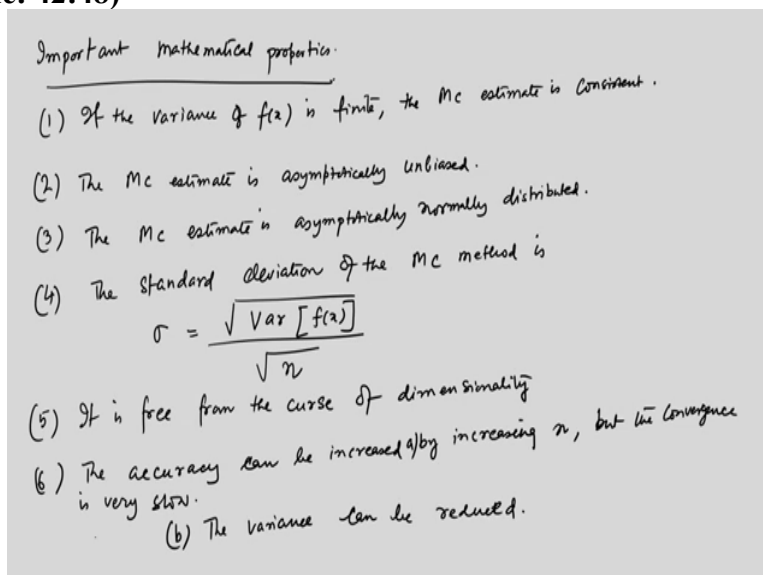 ec: 42:48)
Important mathematical properties.
(1) If the variance of f(x) is finite, the MC estimate is consistent.
(2) The MC estimate is asymptotically unbiased.
(3) The MC estimate is asymptotically normally distributed.
(4) The standard deviation of the MC method is
σ = √Var [f(x)] / √n
(5) It is free from the curse of dimensionality
(6) The accuracy can be increased a) by increasing n, but the convergence
is very slow.
(b) The variance can be reduced.